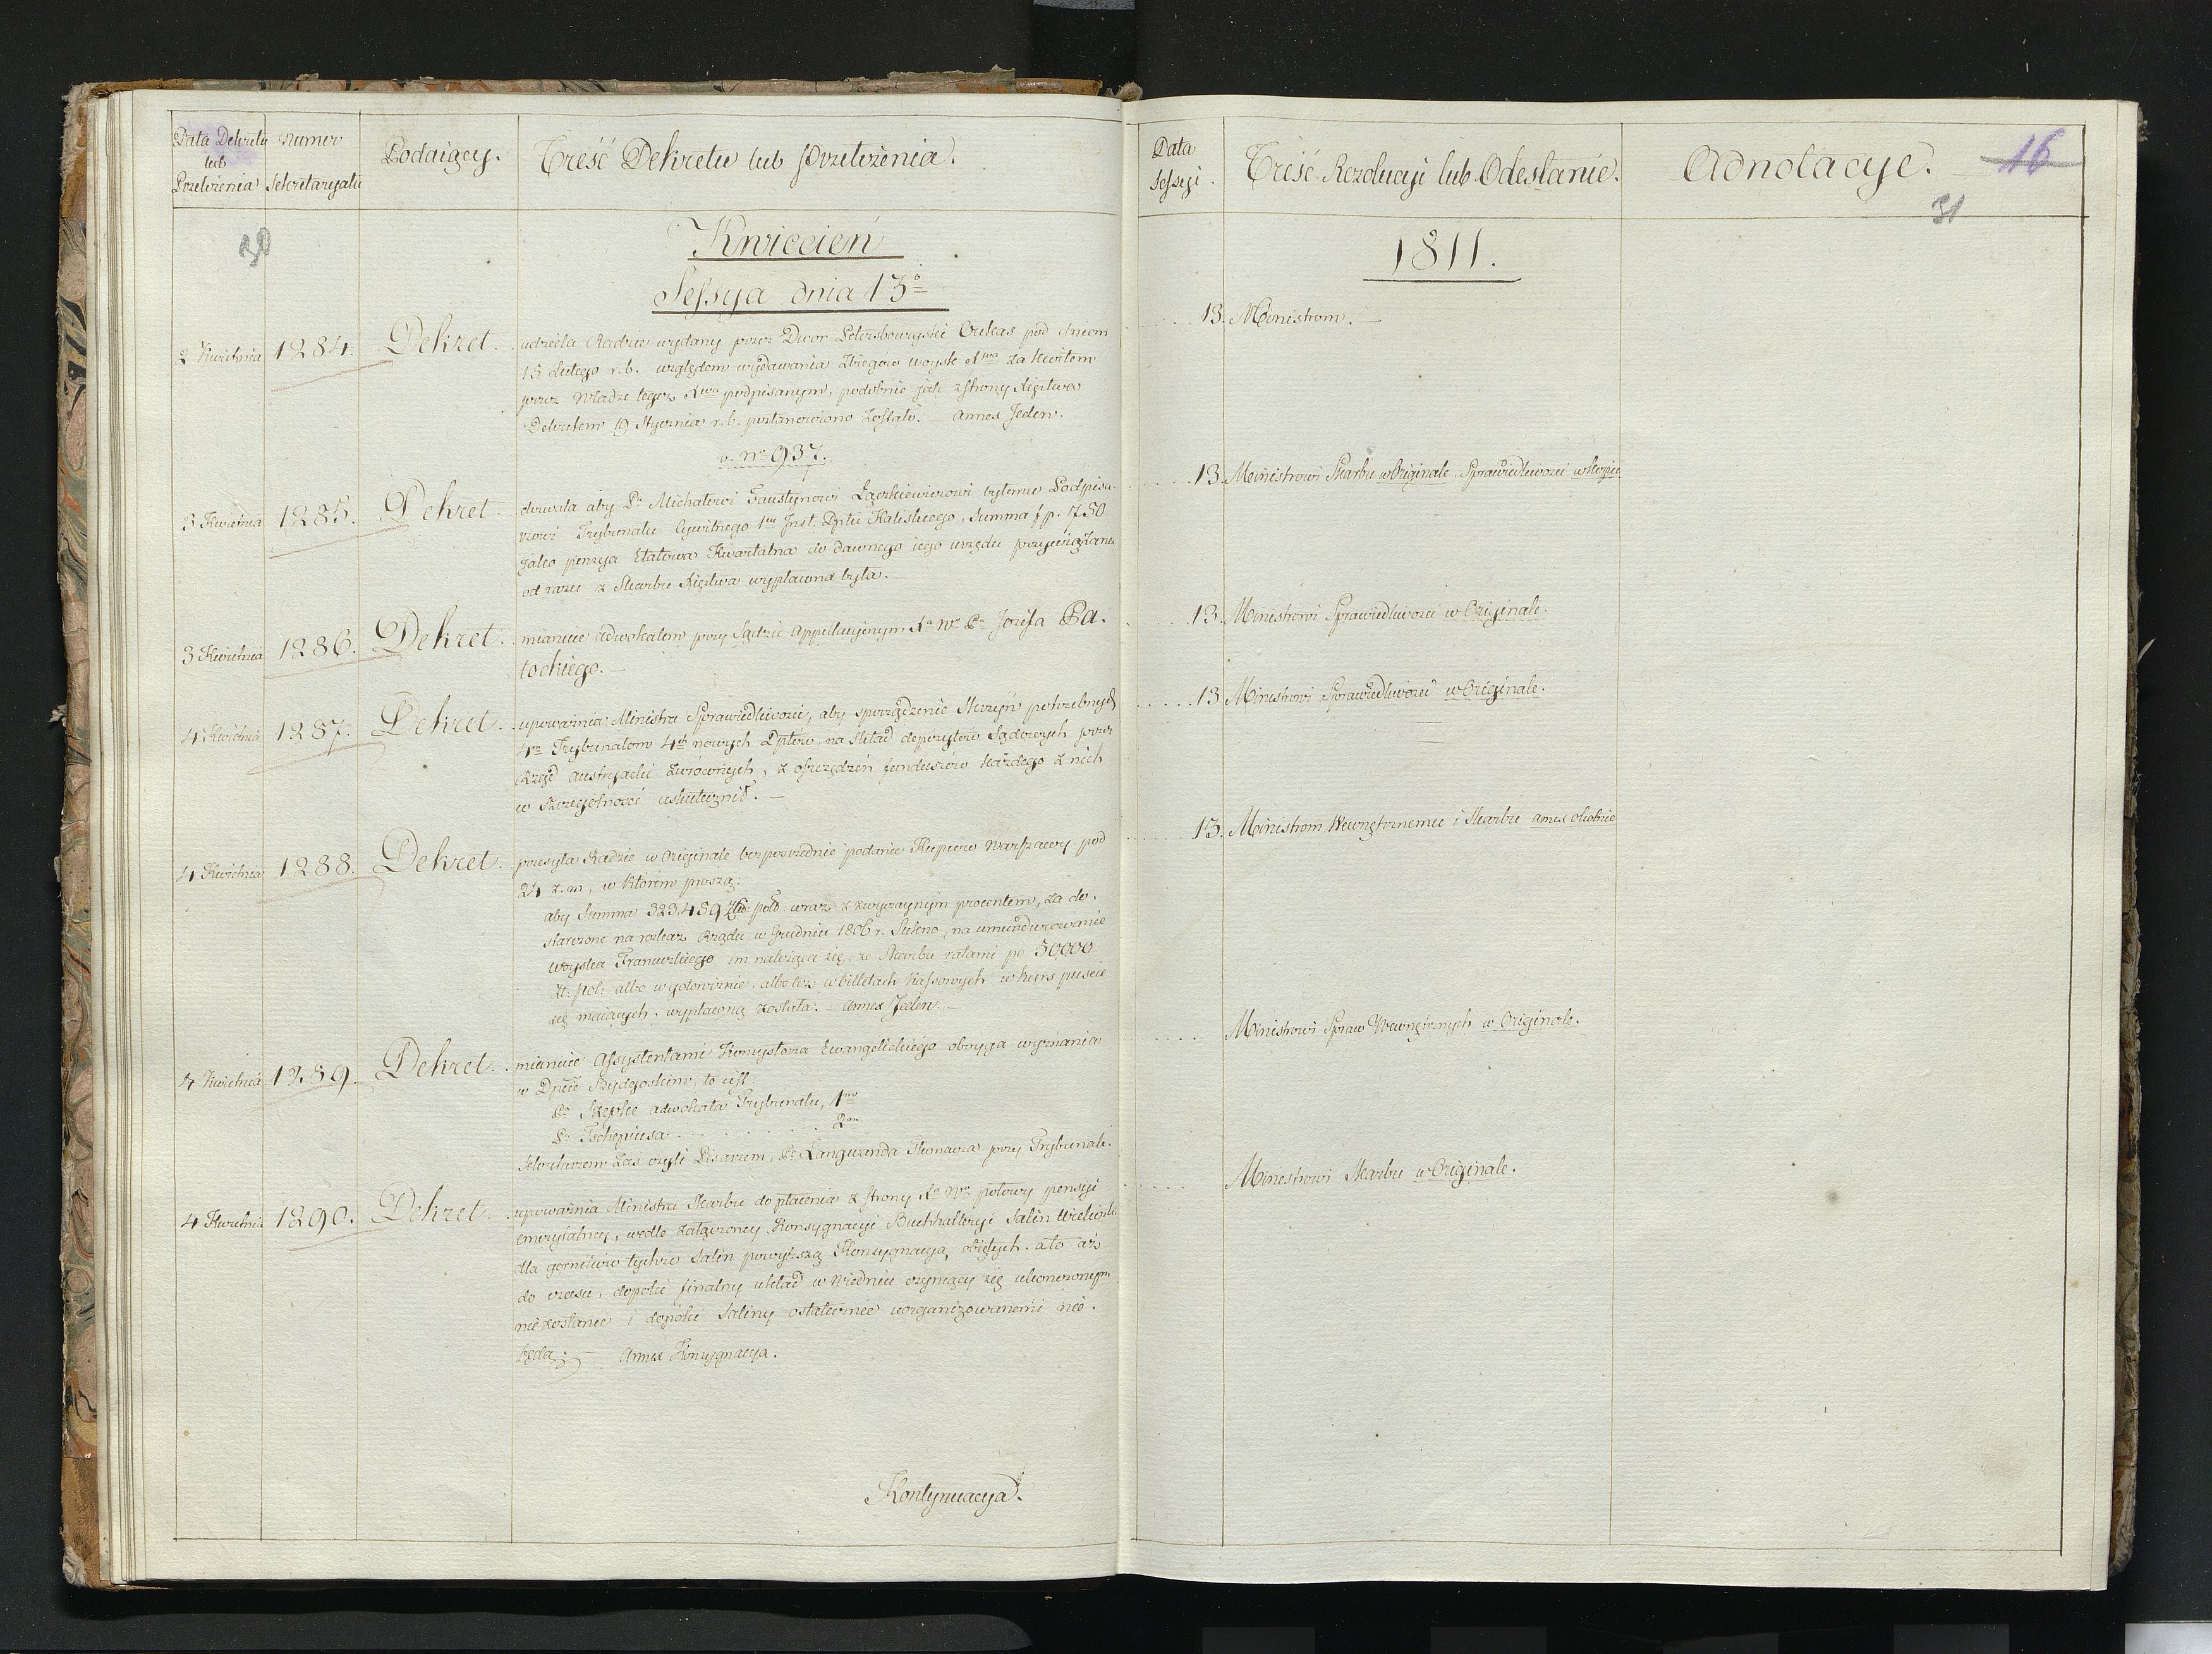 Data Dekretu
lub
Przełożenia
Numer
Sekretaryatu
Podaiący.
Treść Dekretu lub Przełożenia.
30
Kwiecień
Sessya dnia 13º
2 Kwietnia 1284. Dekret. udziela Radzie wydany przez Dwor Petersbourgski Oukas pod dniem
15 Lutego r.b. względem wydawania Zbiegów woysk Xwa za kwitem
przez Władze tegoż Xwa podpisanym, podobnie jak z strony Xięztwa
Dekretem 19 Stycznia r.b. postanowiono zostało. – Annex Jeden.
v. Nº 937.
3 Kwietnia 1285. Dekret. dozwala aby Pu Michałowi Faustynowi Łączkiewiczowi bytemu Podpisa-
rzowi Trybunału Cywilnego 1ey Inst. Dptu Kaliskiego, Summa fp. 750
jako pensya Etatowa Kwartalna do dawnego iego urzędu przywiązana
od razu z Skarbu Xięztwa wypłacona była. –
3 Kwietnia 1286. Dekret. mianuie Adwokatem przy Sądzie Appellacyinym Xa Wo Pa Jozefa Pa-
tockiego. –
4 Kwietnia 1287. Dekret. upoważnia Ministra Sprawiedliwości, aby sporządzenie Skrzyń potrzebnych
4m Trybunałom 4ch nowych Dptów, na skład depozytów Sądowych przez
Rząd Austryacki zwróconych, z oszczędzeń funduszów każdego z nich
w szczególności uskutecznił. –
4 Kwietnia 1288. Dekret. przesyła Radzie w Originale bezpośrednie podanie Kupców Warszawy pod
24 z.m, w którem proszą:
aby Summa 323,459 Złt: pol: wraz z zwyczaynym procentem, za do-
starczone na rozkaz Rządu w Grudniu 1806 r. Sukno, na umundurowanie
woyska Francuzkiego im należąca się, ze Skarbu ratami po 50000
Zł: pol: albo w gotowiznie, albo też w billetach Kassowych w kurs puścić
się maiących, wypłaconą została. – Annex Jeden. –
4 Kwietnia 1289. Dekret. mianuie Assystentami Konsystorza Ewangelickiego oboyga wyznania
w Dptcie Bydgoskim, to iest:
Pa Szepke adwokata Trybunału, 1m
Pa Tschepiusa . . . . . . . 2m
Sekretarzem zas czyli Pisarzem, Pa Langwanda tłomacza przy Trybunale.
4 Kwietnia 1290. Dekret. upoważnia Ministra Skarbu do płacenia z strony Xa Wo połowy pensyi
emerytalney, wedle załączoney Konsygnacyi Buchhalteryi Salin Wielicki
dla gorników tychże Salin powyższą Konsygnacyą obiętych. a to aż
do czasu, dopóki finalny układ w Wiedniu czyniący się ukonczonym
nie zostanie i dopóki Saliny ostatecznie uorganizowanemi nie-
będą. – Annex Konsygnacya.
Kontynuacya.
Data
Sessyi.
Treść Rezolucyi lub Odesłanie.
Adnotacye.
16
31
1811.
13. Ministrom. –
13. Ministrowi Skarbu w Originale. Sprawiedliwości w kopii
13. Ministrowi Sprawiedliwości w Originale.
13. Ministrowi Sprawiedliwości w Originale.
13. Ministrom Wewnętrznemu i Skarbu
Ministrowi Spraw Wewnętrznych w Originale.
Ministrowi Skarbu w Originale.